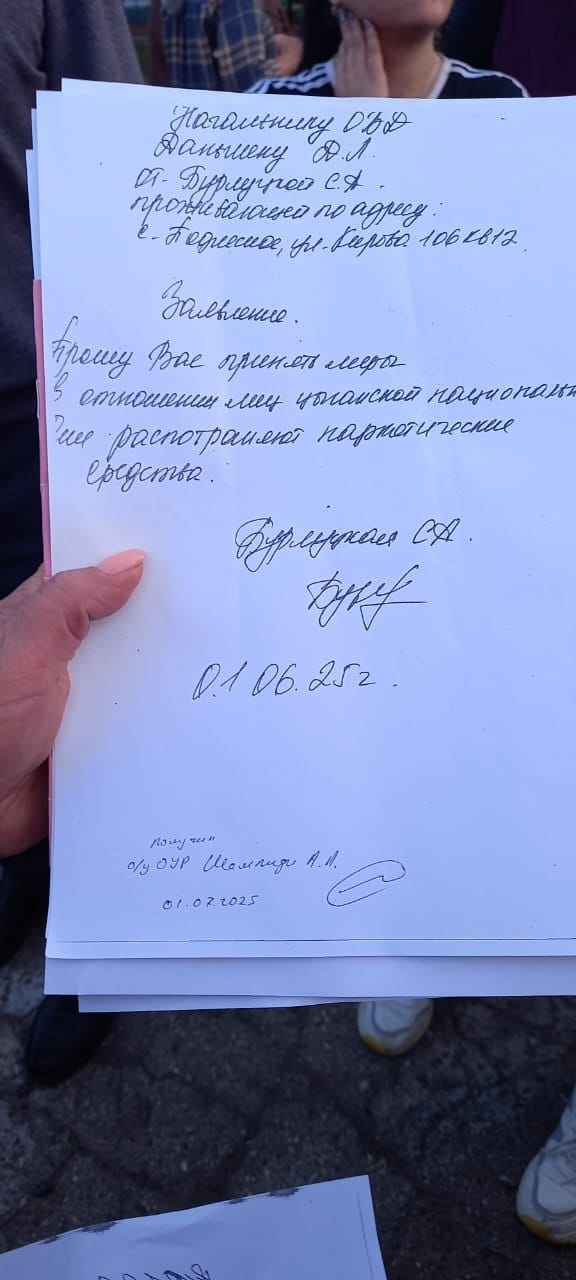 Начальнику ОВД
Даньшену Д.Л.
от Бурлуцкой С.А.
проживающей по адресу:
с. Подлесное, ул. Кирова 106 кв 12
Заявление.
Прошу Вас принять меры
в отношении лиц цыганской националь
распотраняют наркотические
средства.
Бурлуцкая С.А.
01 06.25г.
получил
о/у ОУР А.А.
01.07.2025